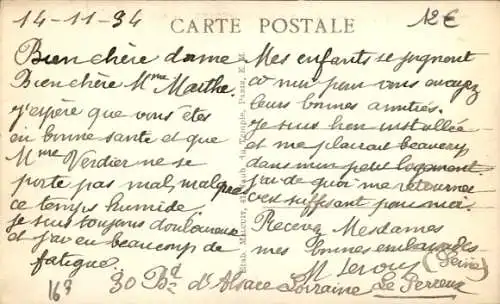 14-11-34
CARTE POSTALE
12€
Bien chère dame
Bien chère Mme Marthe.
J'espère que vous êtes
en bonne santé et que
Mme Verdier ne se
porte pas mal, malgrés
ce temps humide.
Je suis toujours douloureuse
et j'ai eu beaucoup de
fatigue.
Mes enfants se joignent
à moi pour vous envoyez
leurs bonnes amitiés.
Je suis bien installée
et me plairait beaucoup
dans mon petit logement
j'ai de quoi me retourner
c'est suffisant pour moi.
Recevez Mesdames
mes bonnes embrassades
M
30 Bd d'Alsace Lorraine Le Perreux
(Seine)
163
du Temple, Paris